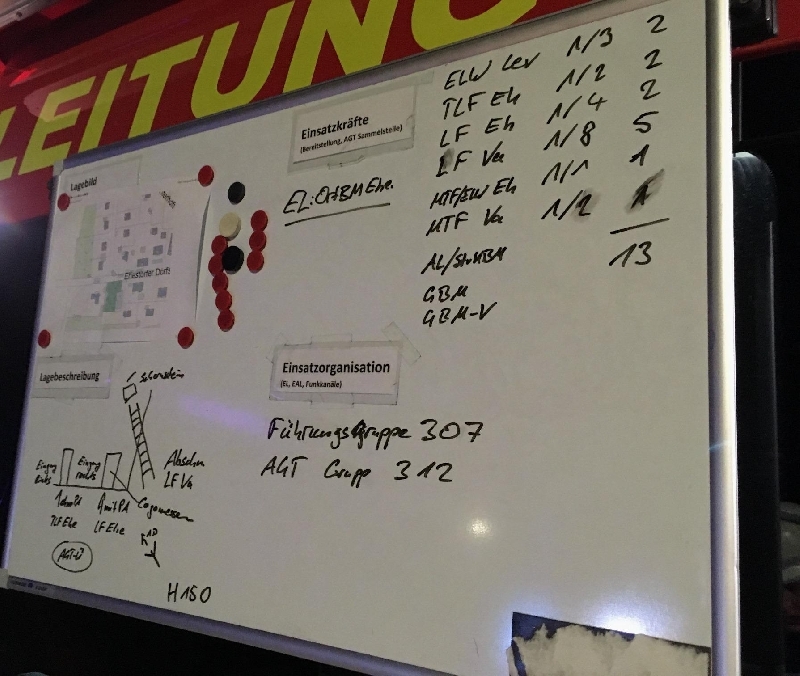 LEITUNG
Lagebild
Ehestorfer Dorfs
Einsatzkräfte
(Bereitstellung, AGT Sammelstelle)
EL: OrtBM Ehe.
ELW Lev 1/3 2
TLF Eh 1/2 2
LF Eh 1/4 2
LF Va 1/8 5
MTF/ELW Eh 1/1 1
MTF Va 1/2 1
13
GBM
GBM-V
Lagebeschreibung
Schornstein
Eingang links
Eingang rechts
Abschn
LF Va
TLF Ehe
LF Ehe
H 150
Einsatzorganisation
(EL, EAL, Funkkanäle)
Führungsgruppe 307
AGT Grupp 312